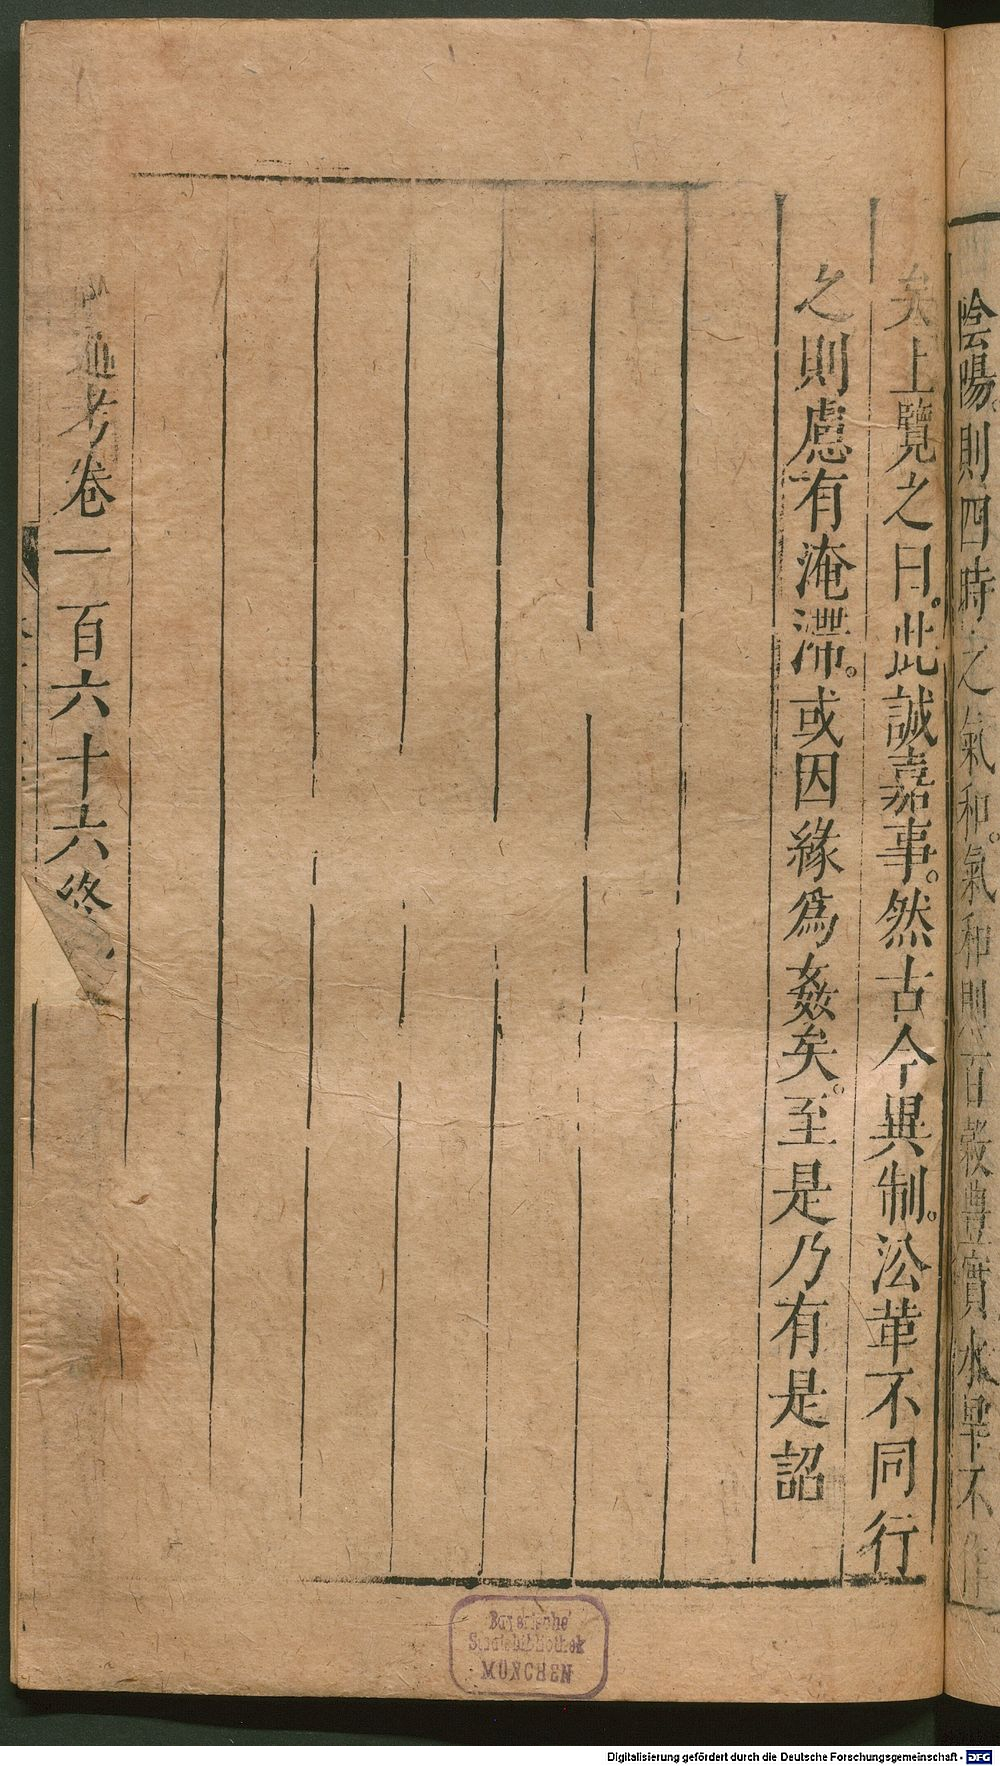 陰陽。則四時之氣和。氣和則百穀豊實水旱不作
矣上覽之曰。此誠嘉事。然古今異制。㳂革不同行
之則慮有淹滯。或因緣爲姦矣。至是乃有是詔
通考卷一百六十六終
Bayerische
Staatsbibliothek
MÜNCHEN
Digitalisierung gefördert durch die Deutsche Forschungsgemeinschaft - DFG